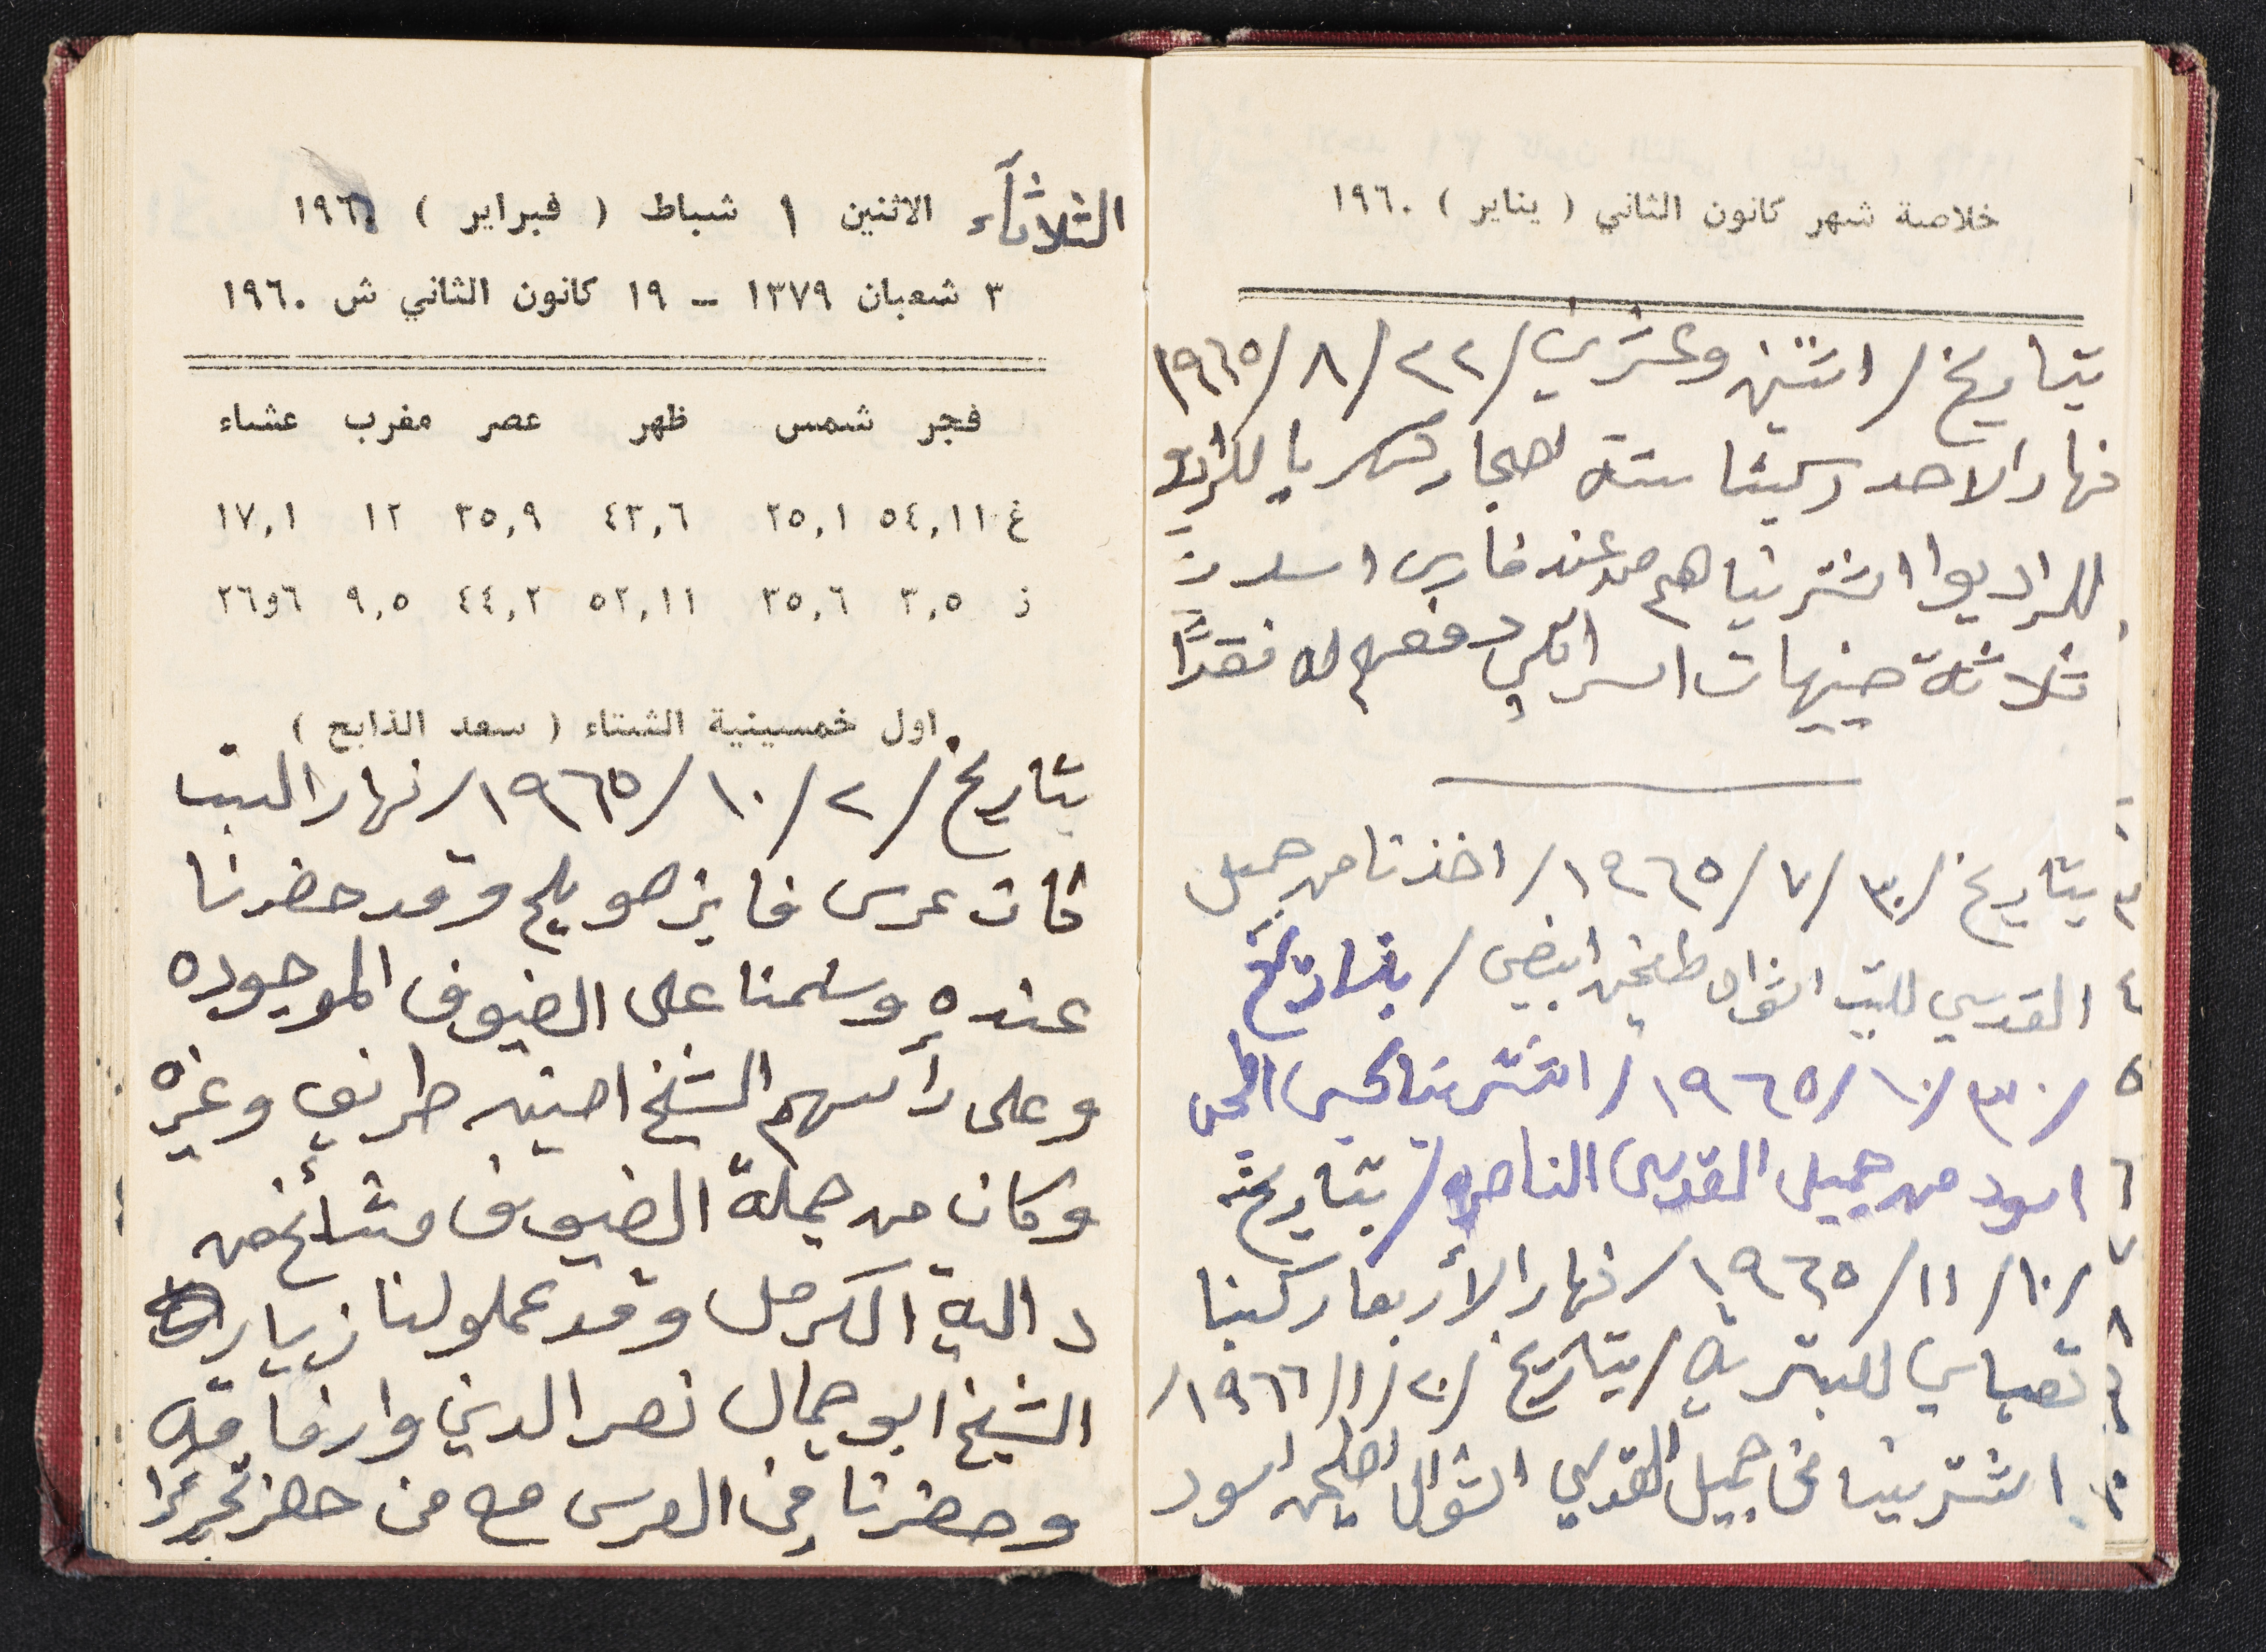 خلاصة شهر كانون الثاني ( يناير ) ١٩٦٠
بتاريخ / اثنين وعشرين / ٢٢ / ٨ / ١٩٦٥
نهار الاحد ركبنا ستة احجار كهربا
للراديوا اشتريناهم من عند فارس اسلان
ثلاثة جنيهات اسرائلي دفعهم له نقداً
بتاريخ / ٣٠ / ٧ / ١٩٦٥ / اخذنا من جميل
القدسي للبيت اشوال طحين ابيض / بتاريخ
/ ٣٠ / ١٠ / ١٩٦٥ / اشترينا كيس اطحين
اسود من جميل القدسي الناصره / بتاريخ
/ ١٠ / ١١ / ١٩٦٥ / نهار الأربعا ركبنا
للبتريه / بتاريخ / ٢٠ / ١ / ١٩٦٦ /
اشترينا من جميل القدسي اشوال اطحين اسود
الثلاثاء الاثنين ١ شباط ( فبراير ) ١٩٦٠
٣ شعبان ١٣٧٩ – ١٩ كانون الثاني ش ١٩٦٠
فجر شمس ظهر عصر مغرب عشاء
غ ٥٤,١١ ٢٥,١ ٤٢,٦ ٢٥,٩ ١٢ ١٧,١
ز ٣,٥ ٣٥,٦ ٥٢,١١ ٤٤,٢ ٩,٥ ٢٦و٦
اول خمسينية الشتاء ( سعد الذابح )
بتاريخ / ٢ / ١٠ / ١٩٦٥ / نهار السبت
كان عرس فايز صويلح وقد حضرنا
عنده وسلمنا على الضيوف الموجوده
وعلى رأسهم الشيخ امين طريف وغيره
وكان من جملة الضيوف مشائخ من
دالية الكرمل وقد عملو لنا زياره
الشيخ ابو جمال نصر الدين وارفاقه
وحضرنا في العرس مع من حضر تحريرا